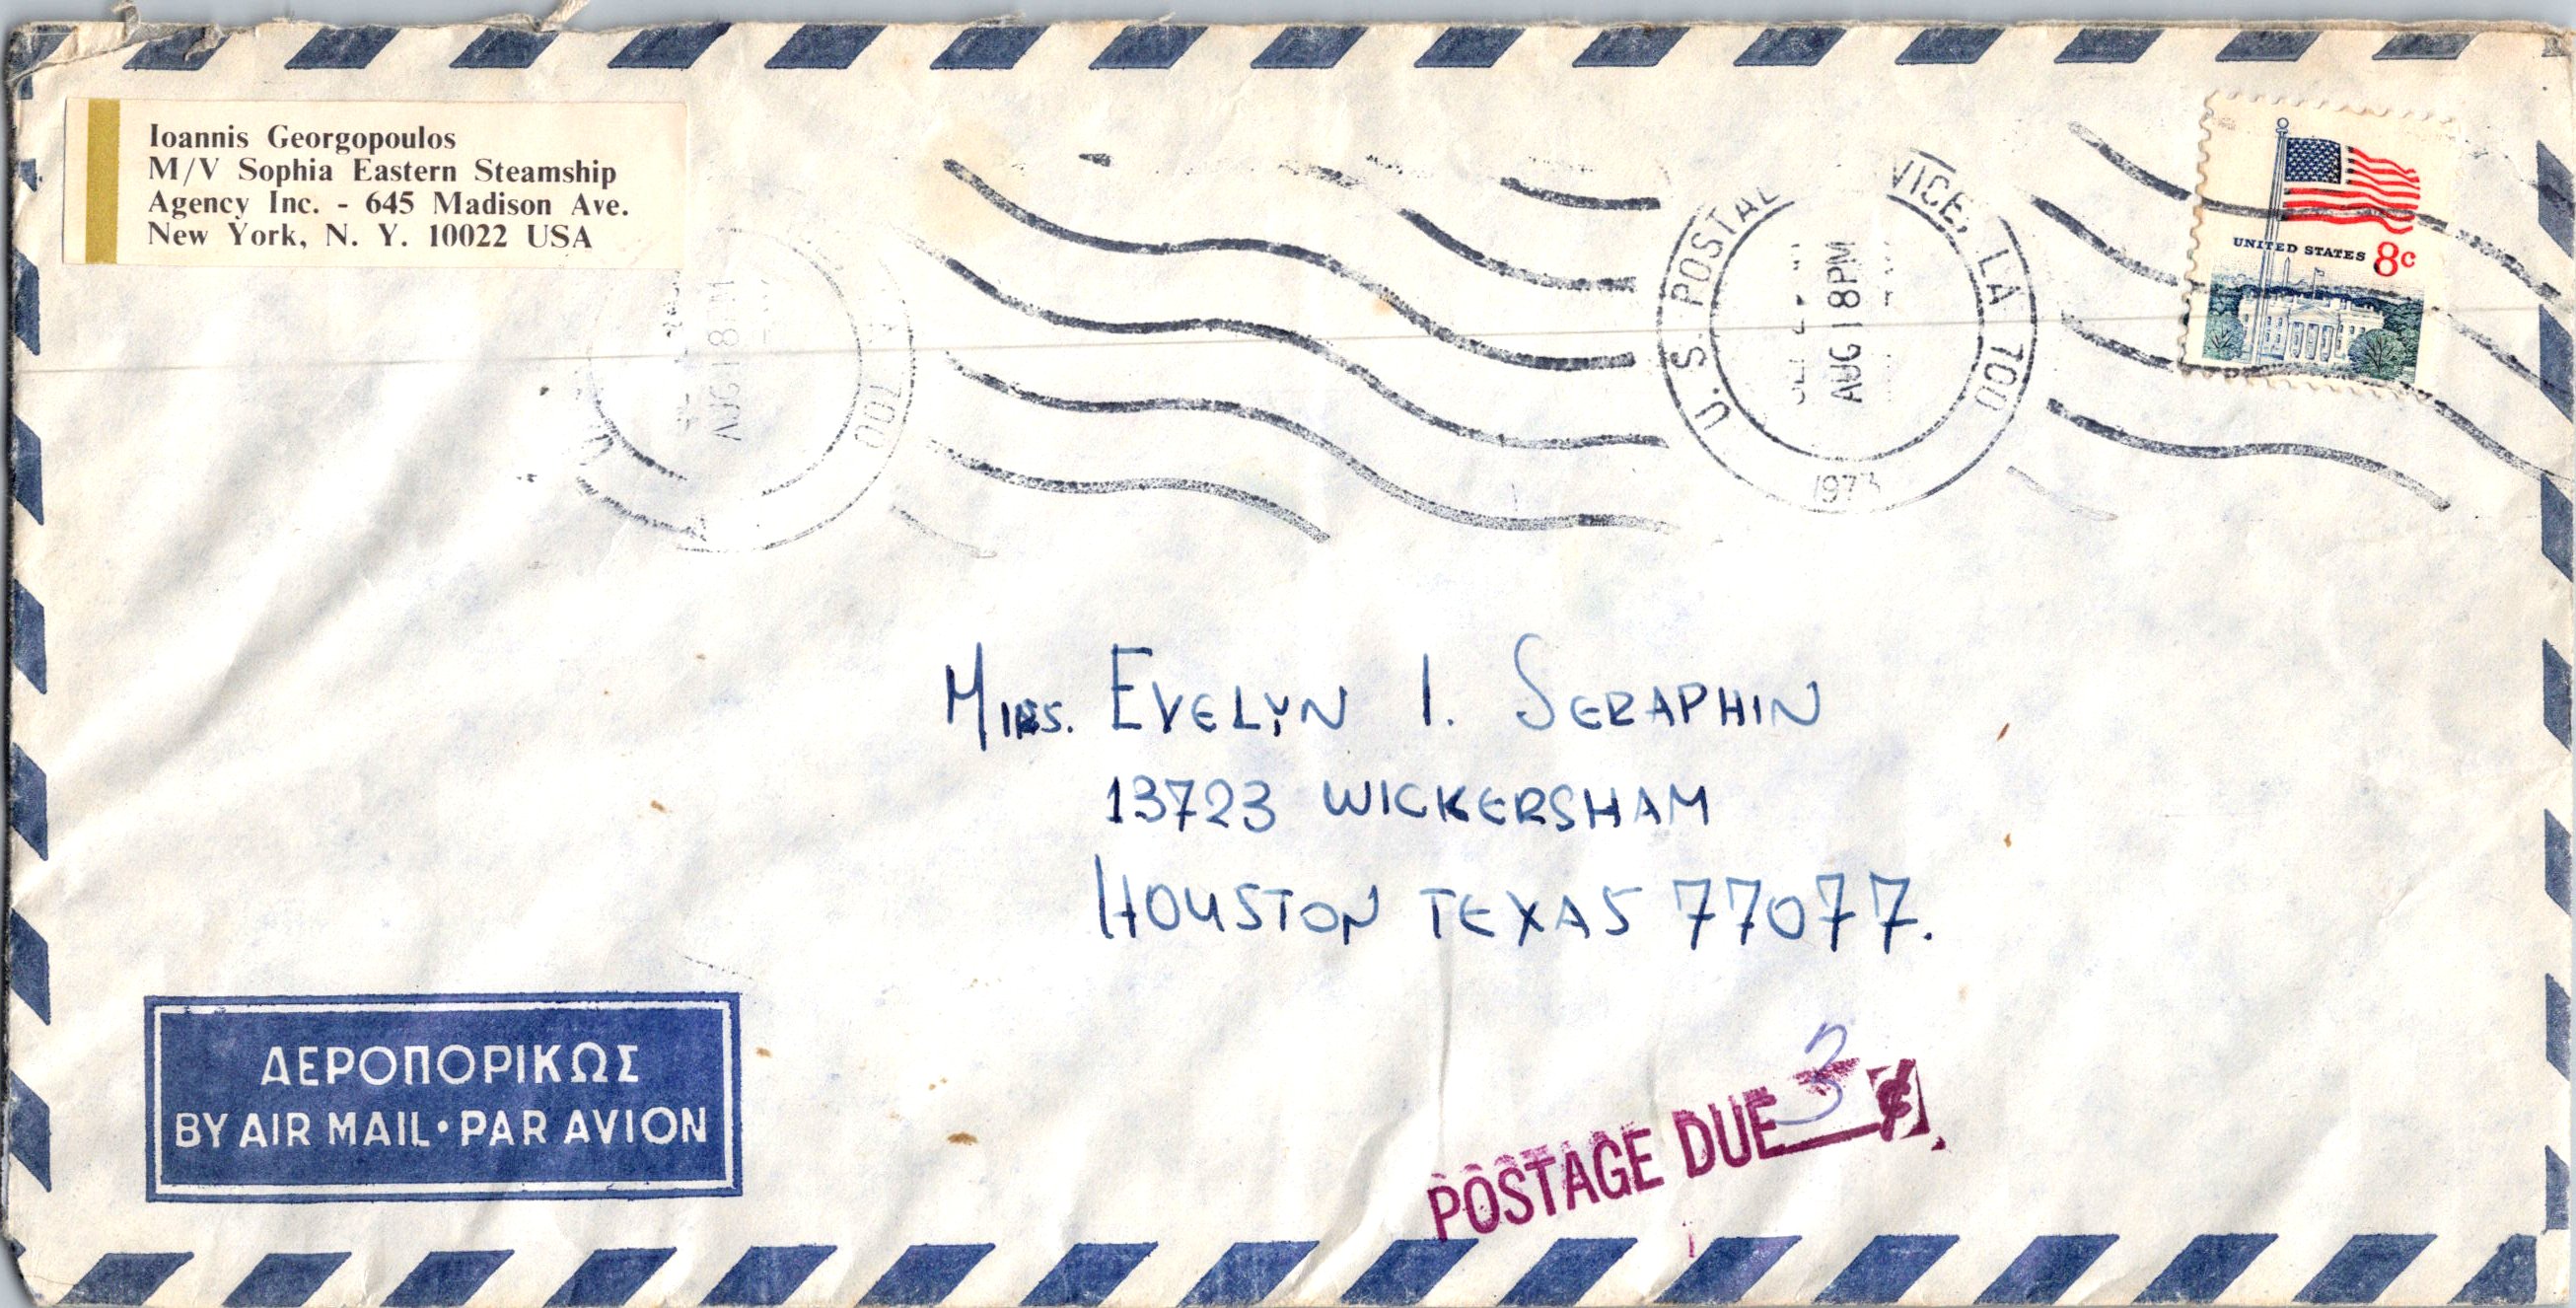 Ioannis Georgopoulos
M/V Sophia Eastern Steamship
Agency Inc. - 645 Madison Ave.
New York, N. Y. 10022 USA
AUG 18 PM
700
U.S. POSTAL VICE, LA 700
AUG 18 PM
1973
UNITED STATES 8c
Mrs. EVELYN I. SERAPHIN
13723 WICKERSHAM
HOUSTON TEXAS 77077.
ΑΕΡΟΠΟΡΙΚΩΣ
BY AIR MAIL • PAR AVION
POSTAGE DUE 3 ¢